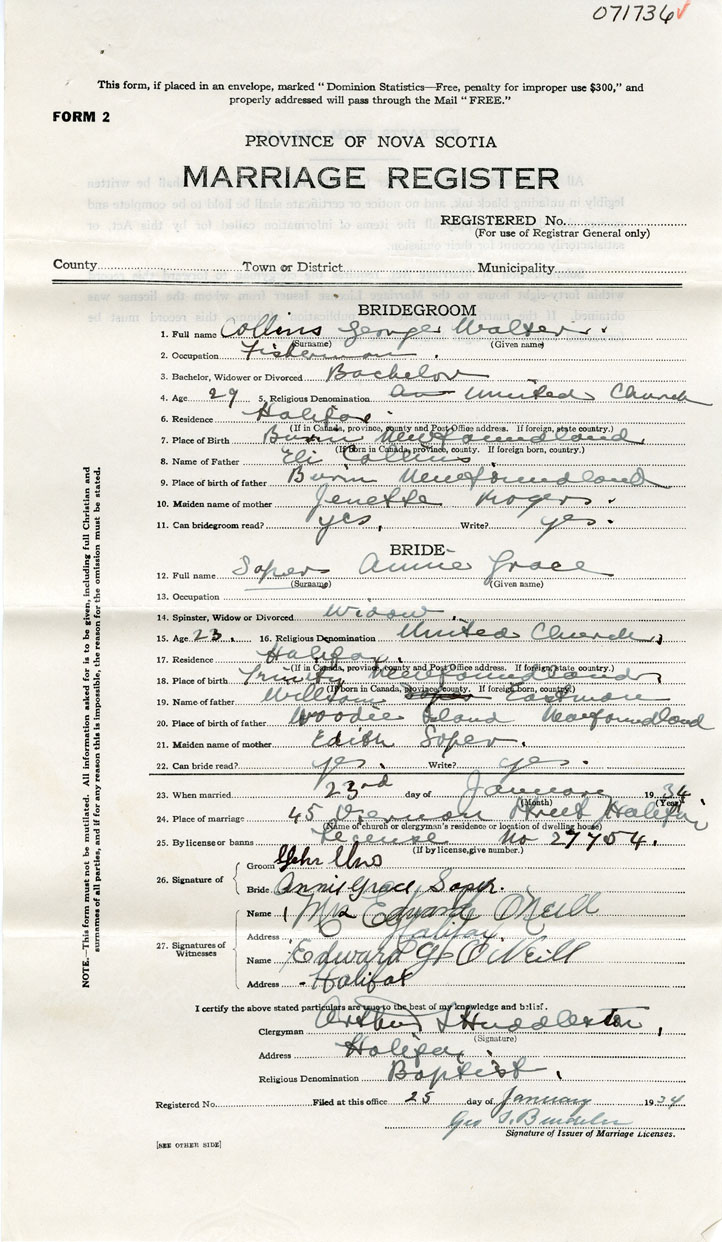 071736
This form, if placed in an envelope, marked "Dominion Statistics—Free, penalty for improper use $300," and
properly addressed will pass through the Mail "FREE."
FORM 2
PROVINCE OF NOVA SCOTIA
MARRIAGE REGISTER
REGISTERED No.
(For use of Registrar General only)
County Town or District Municipality
BRIDEGROOM
1. Full name Collins George Walter
(Surname) (Given name)
2. Occupation Fisherman
3. Bachelor, Widower or Divorced Bachelor
4. Age 29 5. Religious Denomination United Church
6. Residence Halifax
(If in Canada, province, county and Post Office address. If foreign, state country.)
7. Place of Birth Burin Newfoundland
(If born in Canada, province, county. If foreign born, country.)
8. Name of Father Eli Collins
9. Place of birth of father Burin Newfoundland
10. Maiden name of mother Jenette Rogers
11. Can bridegroom read? yes, Write? yes.
BRIDE-
12. Full name Soper Annie Grace
(Surname) (Given name)
13. Occupation
14. Spinster, Widow or Divorced Widow
15. Age 23 16. Religious Denomination United Church
17. Residence Halifax
(If in Canada, province, county and Post Office address. If foreign, state country.)
18. Place of birth Trinity Newfoundland
(If born in Canada, province, county. If foreign born, country.)
19. Name of father William Soper Eastman
20. Place of birth of father Woodie Island Newfoundland
21. Maiden name of mother Edith Soper
22. Can bride read? yes. Write? yes.
23. When married 23rd day of January 1934
(Month) (Year)
24. Place of marriage 45 Vernon Street Halifax
(Name of church or clergyman's residence or location of dwelling house)
25. By license or banns License No 27754.
(If by license, give number.)
26. Signature of
Groom
Bride Annie Grace Soper.
27. Signatures of Witnesses
Name Mrs Edward O'Neill
Address Halifax
Name Edward G O'Neill
Address Halifax
I certify the above stated particulars are true to the best of my knowledge and belief.
Clergyman Arthur J Huddleston
(Signature)
Address Halifax
Religious Denomination Baptist
Registered No. Filed at this office 25 day of January 1934
Geo S.
Signature of Issuer of Marriage Licenses.
[SEE OTHER SIDE]
NOTE.—This form must not be mutilated. All information asked for is to be given, including full Christian and
surnames of all parties, and if for any reason this is impossible, the reason for the omission must be stated.